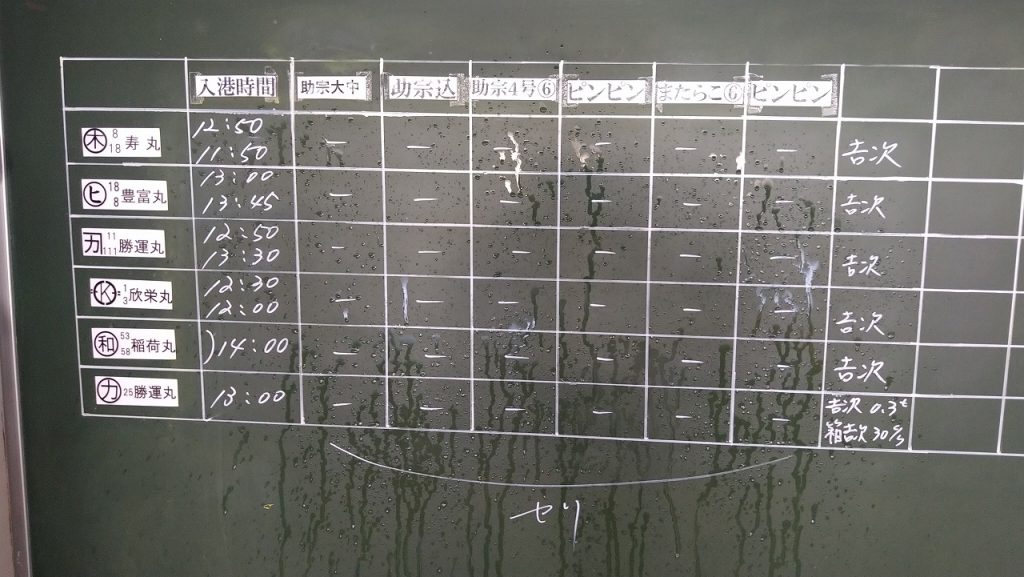 入港時間 助宗大中 助宗込 助宗4号⑥ ピンピン またらこ⑥ ピンピン
㊍ 8 18 寿丸 12:50 11:50 — — — — — — 吉次
ヒ 18 8 豊富丸 13:00 13:45 — — — — — — 吉次
カ 11 111 勝運丸 12:50 13:30 — — — — — — 吉次
K 1 3 欣栄丸 12:30 12:00 — — — — — — 吉次
和 53 58 稲荷丸 )14:00 — — — — — — 吉次
カ 25 勝運丸 13:00 — — — — — — 吉次 0.3t
箱吉次 30
セリ